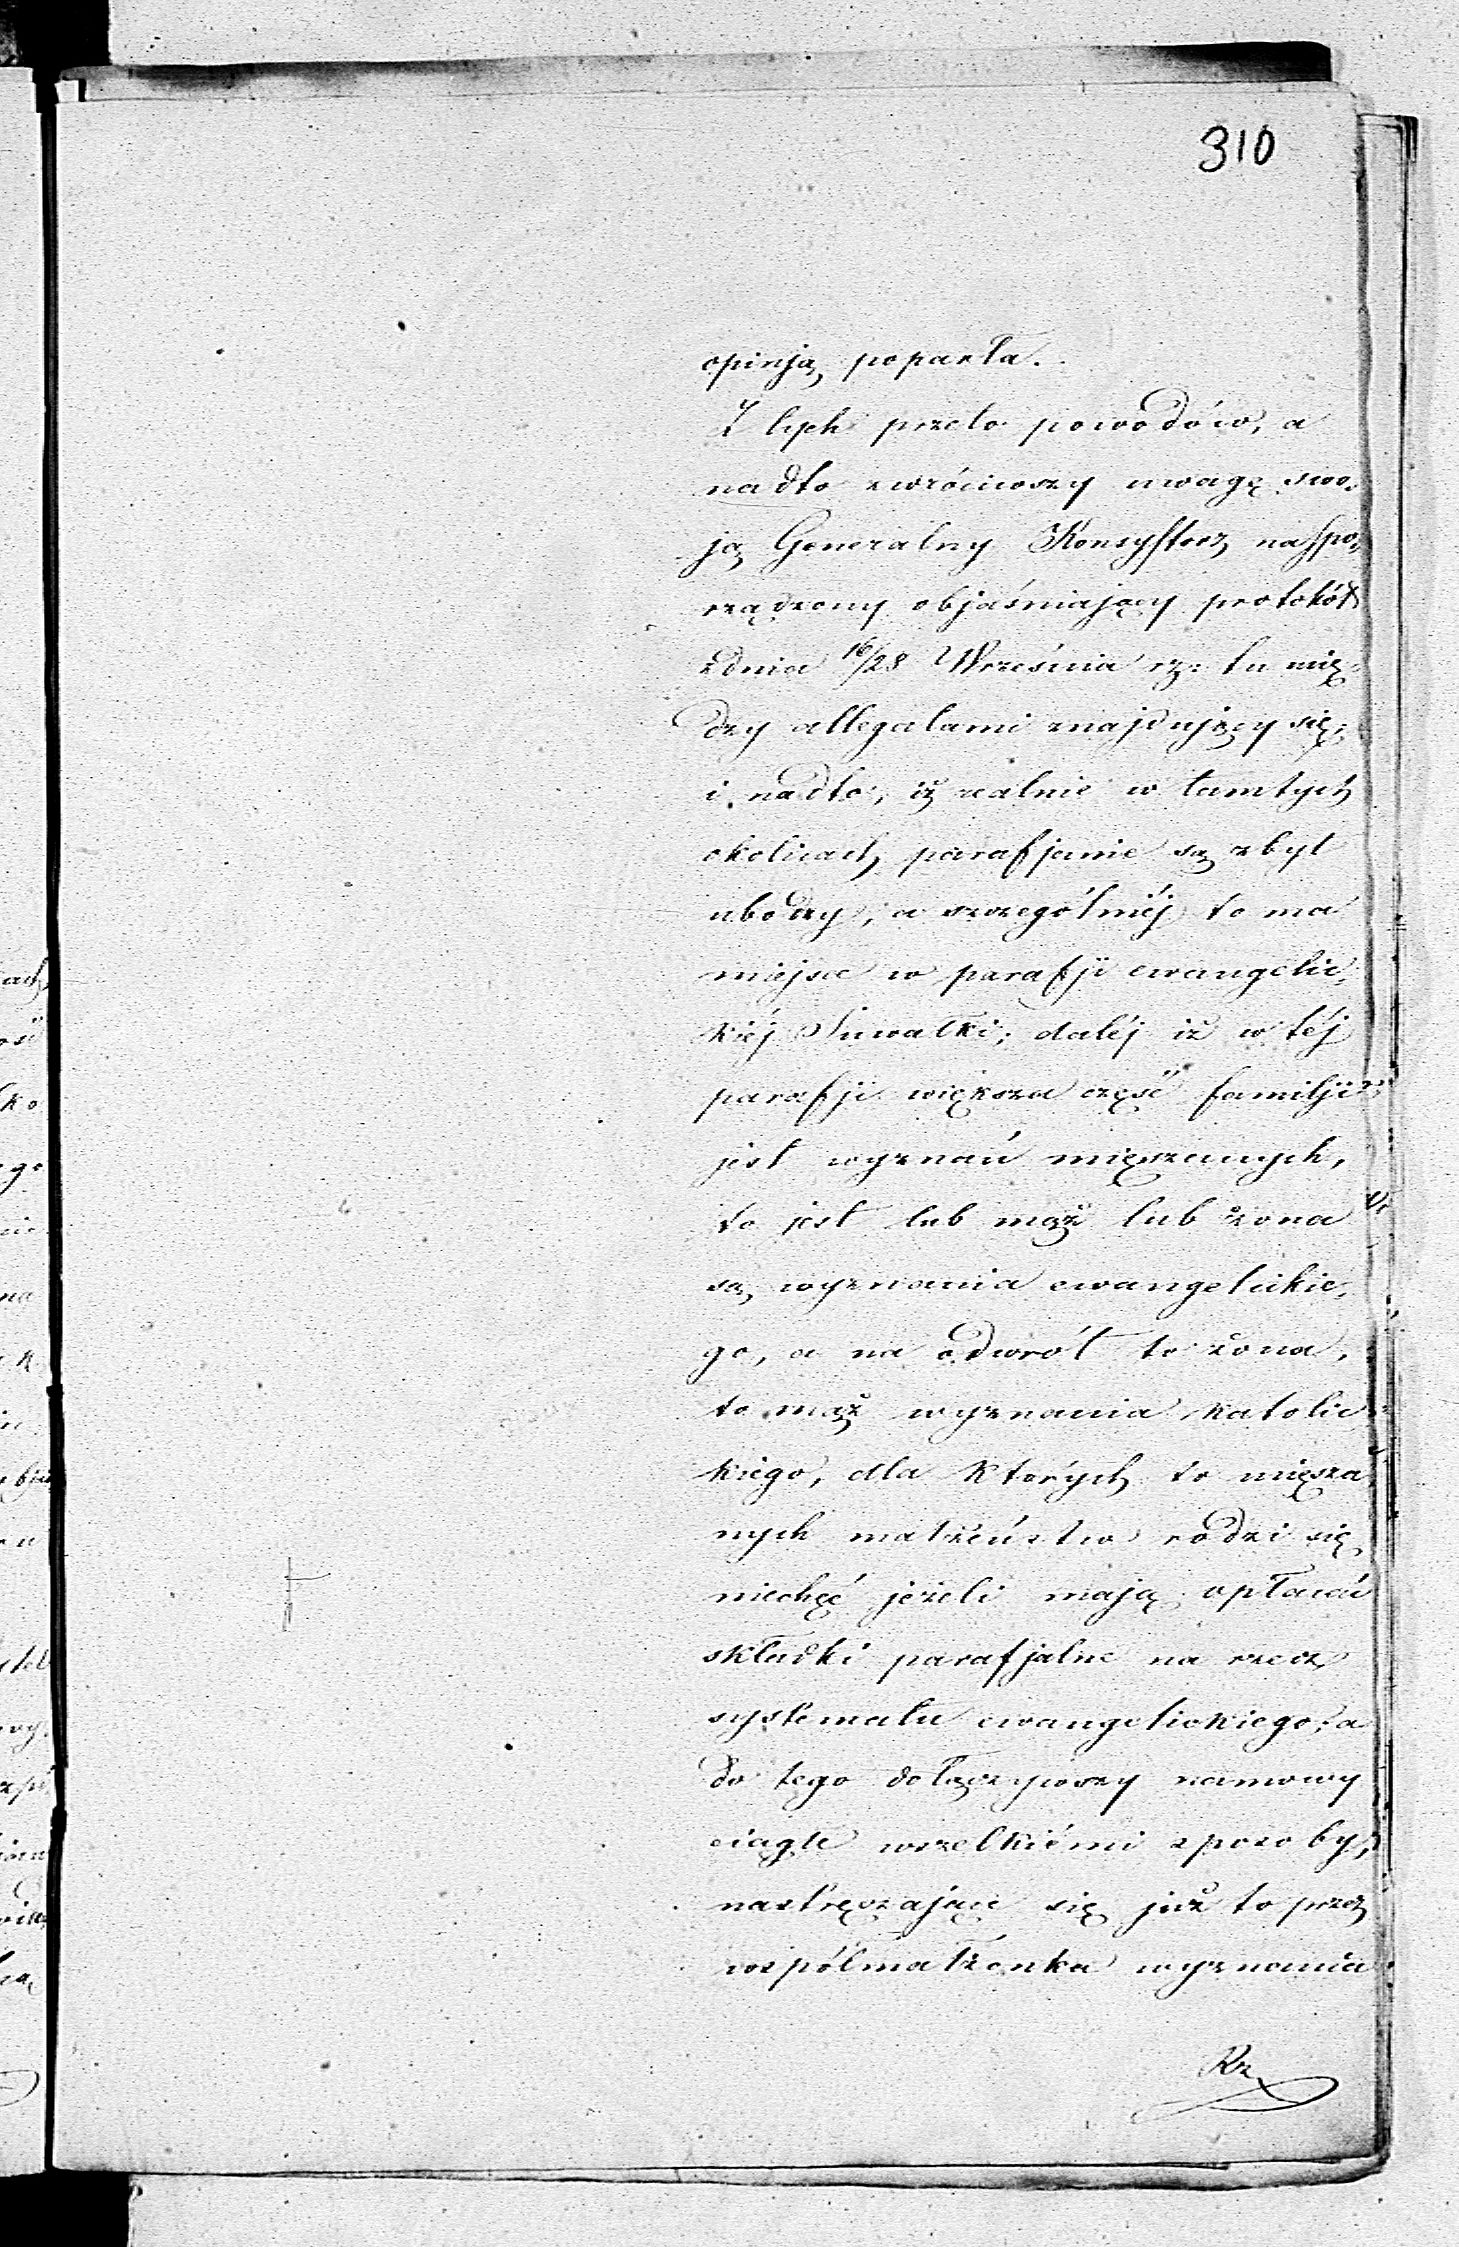 310
opinją poparła.
Z tych przeto powodów, a
nadto zwróciwszy uwagę swo-
ją Generalny Konsystorz na spo-
rządzony objaśniający protokół
z dnia 16/28 Września rz: tu mię-
dzy allegatami znajdujący się,
i nadto, iż realnie w tamtych
okolicach parafjanie są zbyt
ubodzy, a szczególniéj to ma
miejsce w parafji ewangelic-
kiéj Suwałki; daléj iż w téj
parafji większa część familji
jest wyznań mięszanych,
to jest lub mąż lub żona
są wyznania ewangelickie-
go, a na odwrót to żona,
to mąż wyznania katolic-
kiego, dla których to mięsza-
nych małżeństw rodzi się
niechęć jeżeli mają opłacać
składki parafjalne na rzecz
systematu ewangelickiego, a
do tego dołączywszy namowy
ciągłe wszelkiémi sposoby,
nastręczające się już to przez
współmałżonka wyznania
Rz